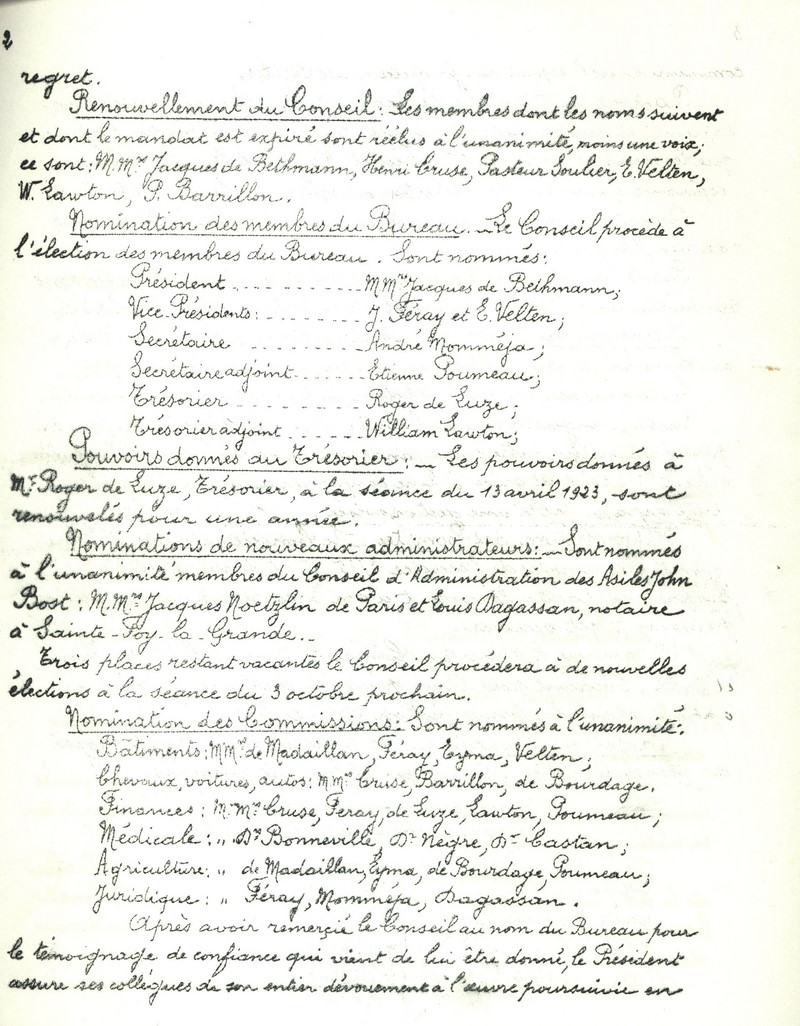 2
regret.
Renouvellement du Conseil: Les membres dont les noms suivent
et dont le mandat est expiré sont réélus à l'unanimité, moins une voix;
ce sont: M.Mrs Jacques de Bethmann, Henri Cruse, Pasteur Soulier, E. Velten,
W. Lawton, P. Barrillon.
Nomination des membres du Bureau. _ Le Conseil procède à
l'élection des membres du Bureau. Sont nommés:
Président . . . . . . . . . . MMrs Jacques de Bethmann;
Vice Présidents: . . . . . . . . J. Féray et E. Velten;
Secrétaire . . . . . . . . . André Momméja;
Secrétaire adjoint . . . . . . Etienne Poumeau;
Trésorier . . . . . . . . . Roger de Luze;
Trésorier adjoint . . . . . . William Lawton;
Pouvoirs donnés au Trésorier: _ Les pouvoirs donnés à
Mr Roger de Luze, Trésorier, à la séance du 13 avril 1923, sont
renouvelés pour une année.
Nominations de nouveaux administrateurs: _ Sont nommés
à l'unanimité membres du Conseil d'Administration des Asiles John
Bost: M.Mrs Jacques Noetzlin de Paris et Louis Dagassan, notaire
à Sainte-Foy-la-Grande._
Trois places restant vacantes le Conseil procédera à de nouvelles
élections à la séance du 3 octobre prochain.
Nomination des Commissions: Sont nommés à l'unanimité:
Bâtiments: MMrs de Madaillan, Féray, Eyma, Velten;
Chevaux, voitures, autos: MMrs Cruse, Barrillon, de Bourdage.
Finances: M.Mrs Cruse, Feray, de Luze, Lawton, Poumeau;
Médicale: " Drs Bonneville, Dr Nègre, Dr Castan;
Agriculture: " de Madaillan, Eyma, de Bourdage, Poumeau;
Juridique: " Féray, Momméja, Dagassan.
Après avoir remercié le Conseil au nom du Bureau pour
le témoignage de confiance qui vient de lui être donné, le Président
assure ses collègues de son entier dévouement à l'œuvre poursuivie en